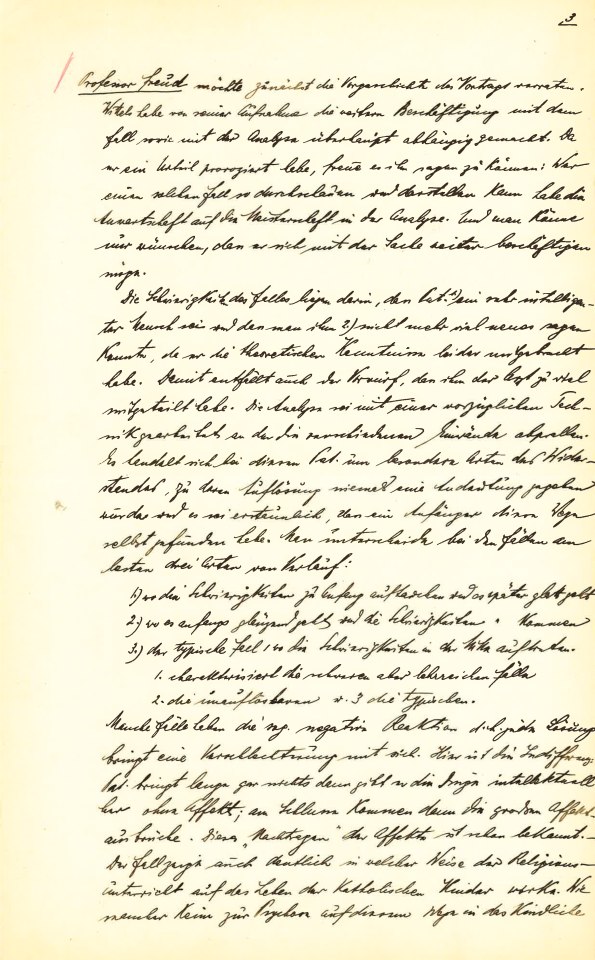 3
Professor Freud möchte zunächst die Vorgeschichte des Vortrags verraten.
habe von seiner Aufnahme die weitere Beschäftigung mit dem
Fall sowie mit der Analyse überhaupt abhängig gemacht. Da
er ein Urteil provoziert habe, freue es ihn sagen zu können: Wer
einen solchen Fall so durchschauen und darstellen kann habe die
Anwartschaft auf die Meisterschaft in der Analyse. Und man könne
nur wünschen, dass er sich mit der Sache weiter beschäftigen
möge.
Die Schwierigkeiten des Falles liegen darin, dass Pat. 1) ein sehr intelligen-
ter Mensch sei und dass man ihm 2) nicht mehr viel neues sagen
konnte, da er die theoretischen Kenntnisse bereits mitgebracht
habe. Damit entfällt auch der Vorwurf, dass ihm der Arzt zu viel
mitgeteilt habe. Die Analyse sei mit einer vorzüglichen Tech-
nik gearbeitet an der die verschiedenen Einwände abprallen.
Es handelt sich bei diesem Pat. um besondere Arten des Wider-
standes, zu deren Auflösung niemals eine Andeutung gegeben
wurde und es sei erstaunlich, dass ein Anfänger diesen Weg
selbst gefunden habe. Man unterscheide bei den Fällen am
besten drei Arten von Verlauf:
1.) wo die Schwierigkeiten zu Anfang auftauchen und es später glatt geht
2.) wo es anfangs glänzend geht und die Schwierigkeiten " kommen
3.) der typische Fall: wo die Schwierigkeiten in der Mitte auftreten.
1. charakterisiert die schweren aber lehrreichen Fälle
2. die unauflösbaren u. 3 die typischen.
Manche Fälle haben die sog. negative Reaktion d.h. jede Lösung
bringt eine Verschlechterung mit sich. Hier ist die Indifferenz:
Pat. bringt lange gar nichts dann gibt er die Dinge intellektuell
her ohne Affekt; am Schluss kommen dann die grossen Affekt-
ausbrüche. Dieses „Nachtragen" der Affekte ist schon bekannt.
Der Fall zeigt auch deutlich in welcher Weise der Religions-
unterricht auf das Leben der katholischen Kinder wirke. Wie
mancher Keim zur Psychose auf diesem Wege in das kindliche